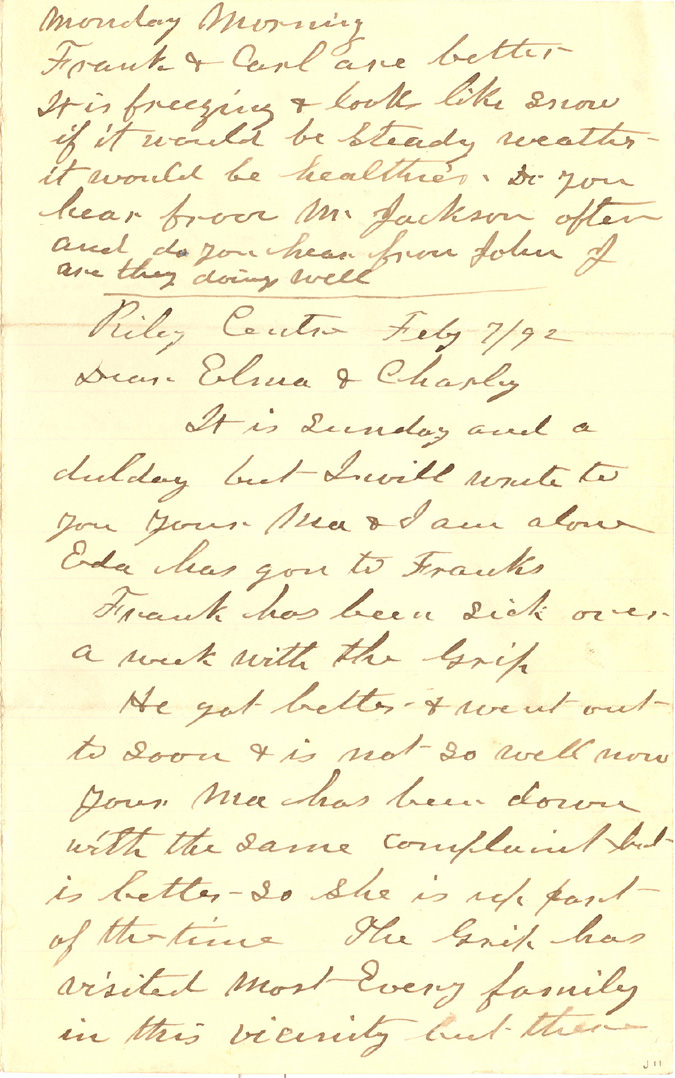 Monday Morning
Frank & Carl are better
It is freezing & looks like snow
if it would be steady weather
it would be healthier. Do you
hear from Mr Jackson often
and do you hear from John J
are they doing well
Riley Centre Feby 7/92
Dear Elma & Charley
It is Sunday and a
dul day but I will write to
you your Ma & I am alone
Eda has gon to Franks
Frank has been sick over
a week with the Grip
He got better & went out
to soon & is not so well now
your Ma has been down
with the same complaint but
is better so she is up part
of the time The Grip has
visited most Every family
in this vicinity but there
J 11